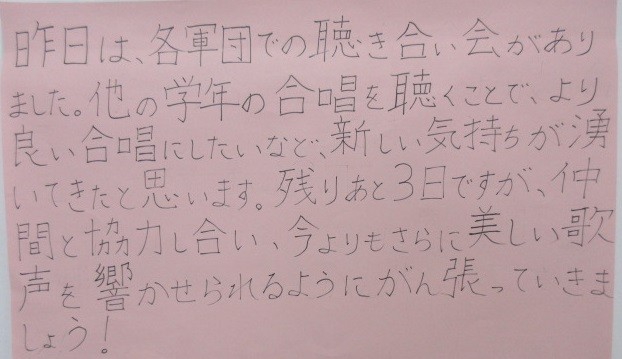 昨日は、各軍団での聴き合い会があり
ました。他の学年の合唱を聴くことで、より
良い合唱にしたいなど、新しい気持ちが湧
いてきたと思います。残りあと3日ですが、仲
間と協力し合い、今よりもさらに美しい歌
声を響かせられるようにがん張っていきま
しょう！